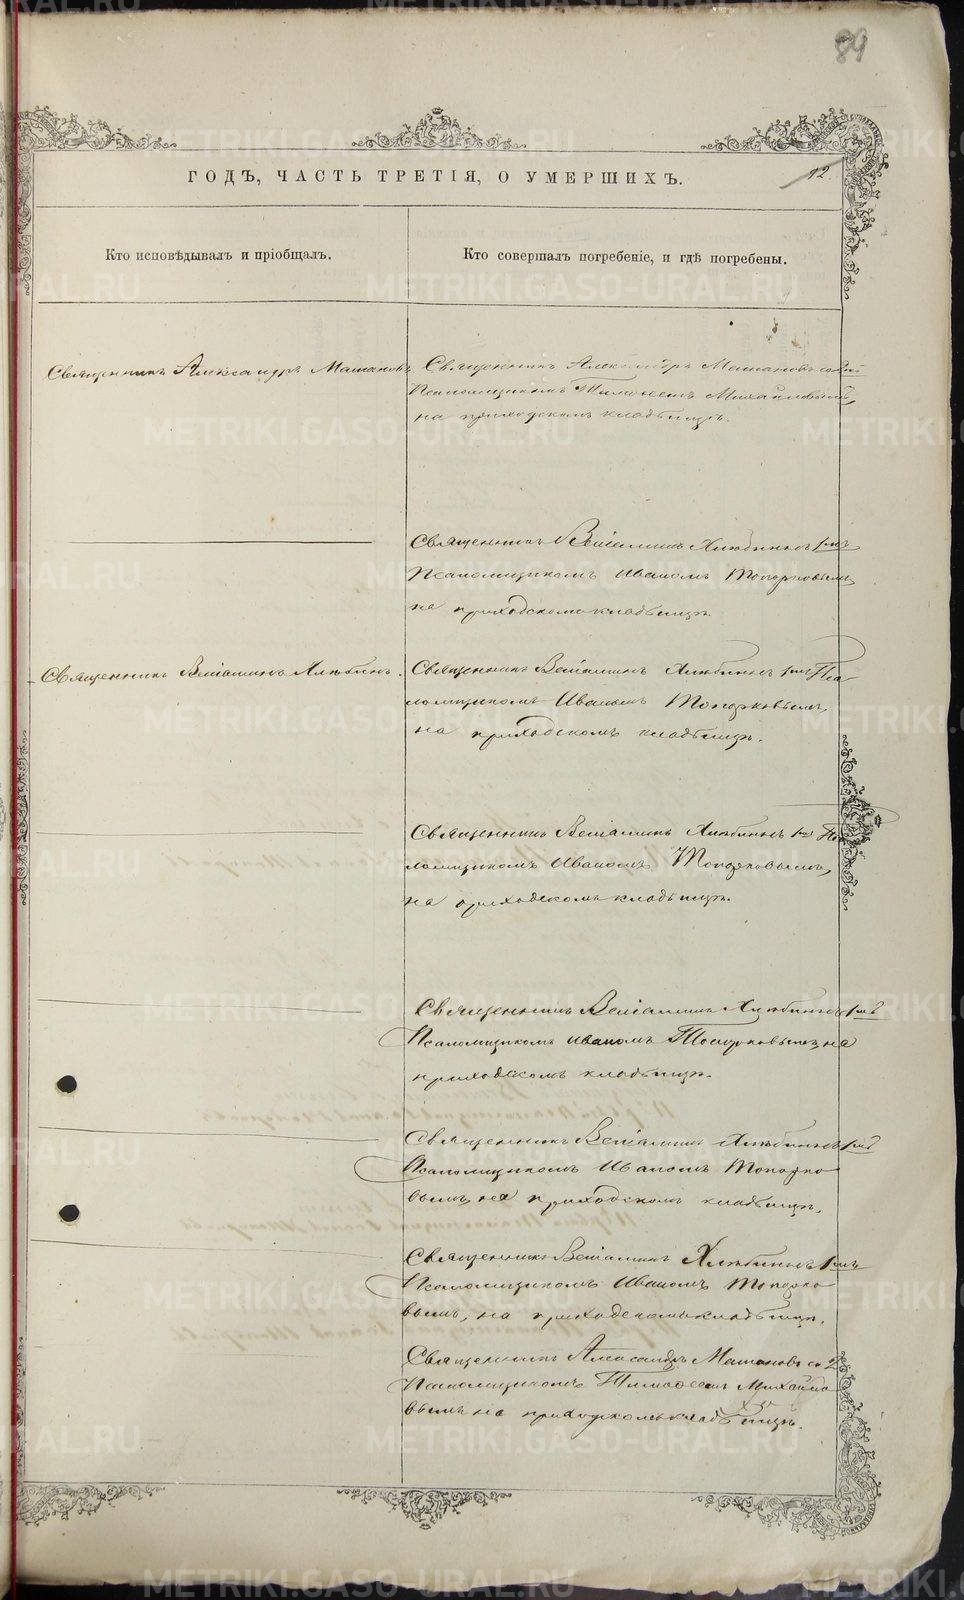 89
ГОДЪ, ЧАСТЬ ТРЕТІЯ, О УМЕРШИХЪ.
12
Кто исповѣдывалъ и пріобщалъ.
Кто совершалъ погребеніе, и гдѣ погребены.
Священникъ Александръ
Священникъ Александръ
Псаломщикомъ Тимоѳеемъ Михайловымъ,
на приходскомъ кладбищѣ.
Священникъ Веніаминъ Хлѣбинъ съ 1мъ
Псаломщикомъ Иваномъ Топорковымъ,
на приходскомъ кладбищѣ.
Священникъ Веніаминъ Хлѣбинъ.
Священникъ Веніаминъ Хлѣбинъ съ 1мъ Пса-
ломщикомъ Иваномъ Топорковымъ,
на приходскомъ кладбищѣ.
Священникъ Веніаминъ Хлѣбинъ съ 1мъ Пса-
ломщикомъ Иваномъ Топорковымъ,
на приходскомъ кладбищѣ.
Священникъ Веніаминъ Хлѣбинъ съ 1мъ
Псаломщикомъ Иваномъ Топорковымъ, на
приходскомъ кладбищѣ.
Священникъ Веніаминъ Хлѣбинъ съ 1мъ
Псаломщикомъ Иваномъ Топорко-
вымъ, на приходскомъ кладбищѣ.
Священникъ Веніаминъ Хлѣбинъ съ 1мъ
Псаломщикомъ Иваномъ Топорко-
вымъ, на приходскомъ кладбищѣ.
Священникъ Александръ
Псаломщикомъ Тимоѳеемъ Михайло-
вымъ на приходскомъ кладбищѣ.
METRIKI.GASO-URAL.RU